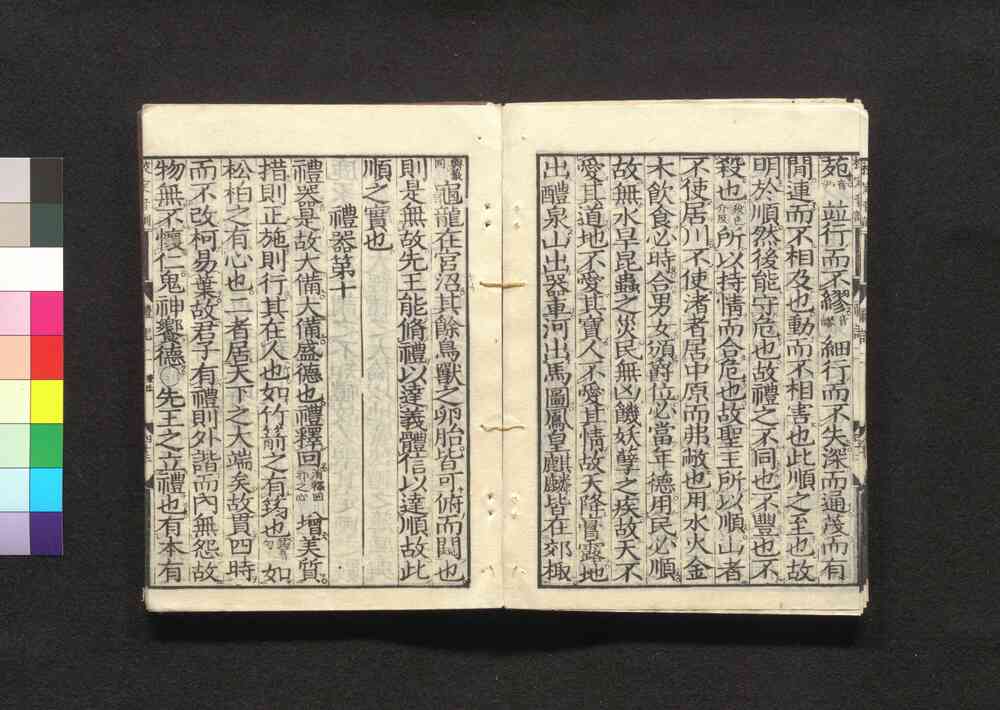 苑音尹竝行而不繆音謬細行而不失深而通茂而有
間連而不相及也動而不相害也此順之至也故
明於順然後能守危也故禮之不同也不豐也不
殺也所以持情而合危也故聖王所以順山者
不使居川不使渚者居中原而弗敝也用水火金
木飲食必時合男女頒爵位必當年德用民必順
故無水旱昆蟲之災民無凶饑妖孽之疾故天不
愛其道地不愛其寶人不愛其情故天降膏露地
出醴泉山出器車河出馬圖鳳皇麒麟皆在郊棷
龜龍在宮沼其餘鳥獸之卵胎皆可俯而闚也
則是無故先王能脩禮以達義體信以達順故此
順之實也
禮器第十
禮器是故大備大備盛德也禮釋回消釋回邪之心增美質
措則正施則行其在人也如竹箭之有筠也如
松柏之有心也二者居天下之大端矣故貫四時
而不改柯易葉故君子有禮則外諧而內無怨故
物無不懷仁鬼神饗德○先王之立禮也有本有